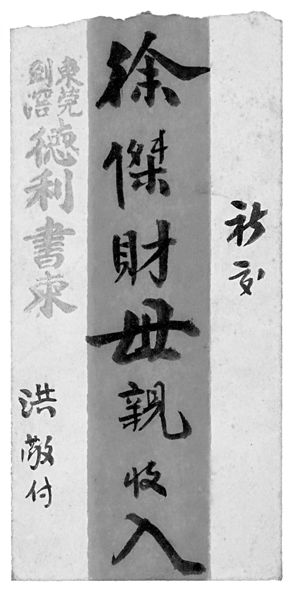 祈交
徐傑財毋親收入
東莞
劍滘
德利書柬
洪敬付